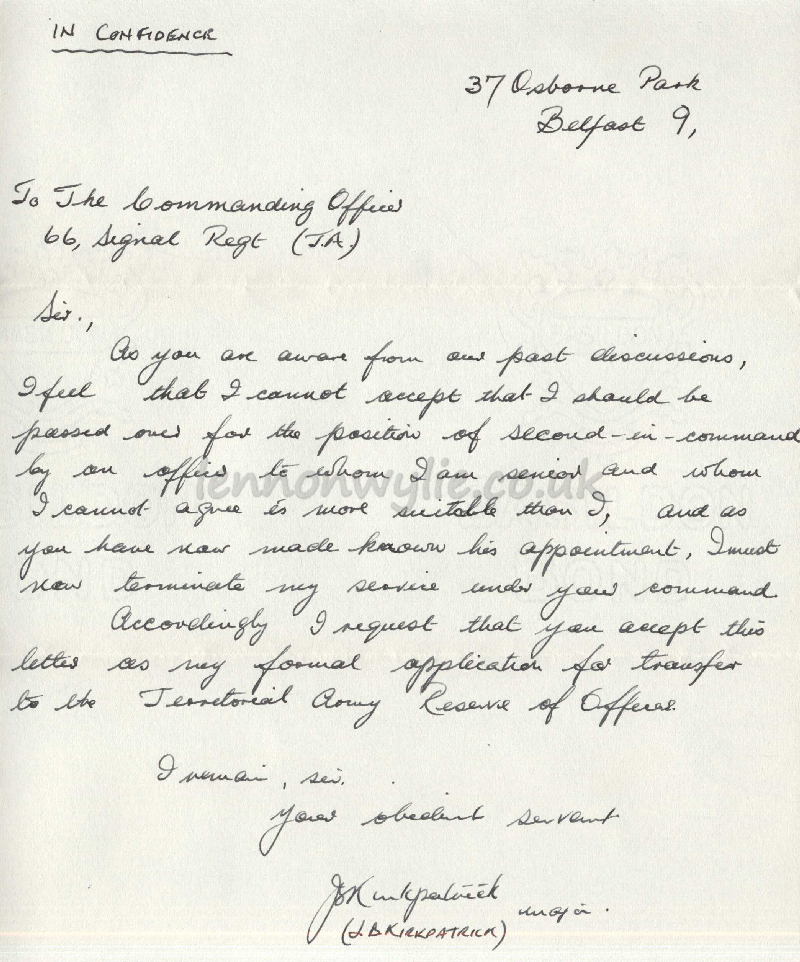 IN CONFIDENCE
37 Osborne Park
Belfast 9,
To The Commanding Officer
66, Signal Regt (T.A.)
Sir.,
As you are aware from our past discussions,
I feel that I cannot accept that I should be
passed over for the position of second-in-command
by an officer to whom I am senior and whom
lennonwylie.co.uk
I cannot agree is more suitable than I, and as
you have now made known his appointment, I must
now terminate my service under your command
Accordingly I request that you accept this
letter as my formal application for transfer
to the Territorial Army Reserve of Officers.
I remain, sir.
Your obedient servant
JBKirkpatrick major.
(J.B KIRKPATRICK)